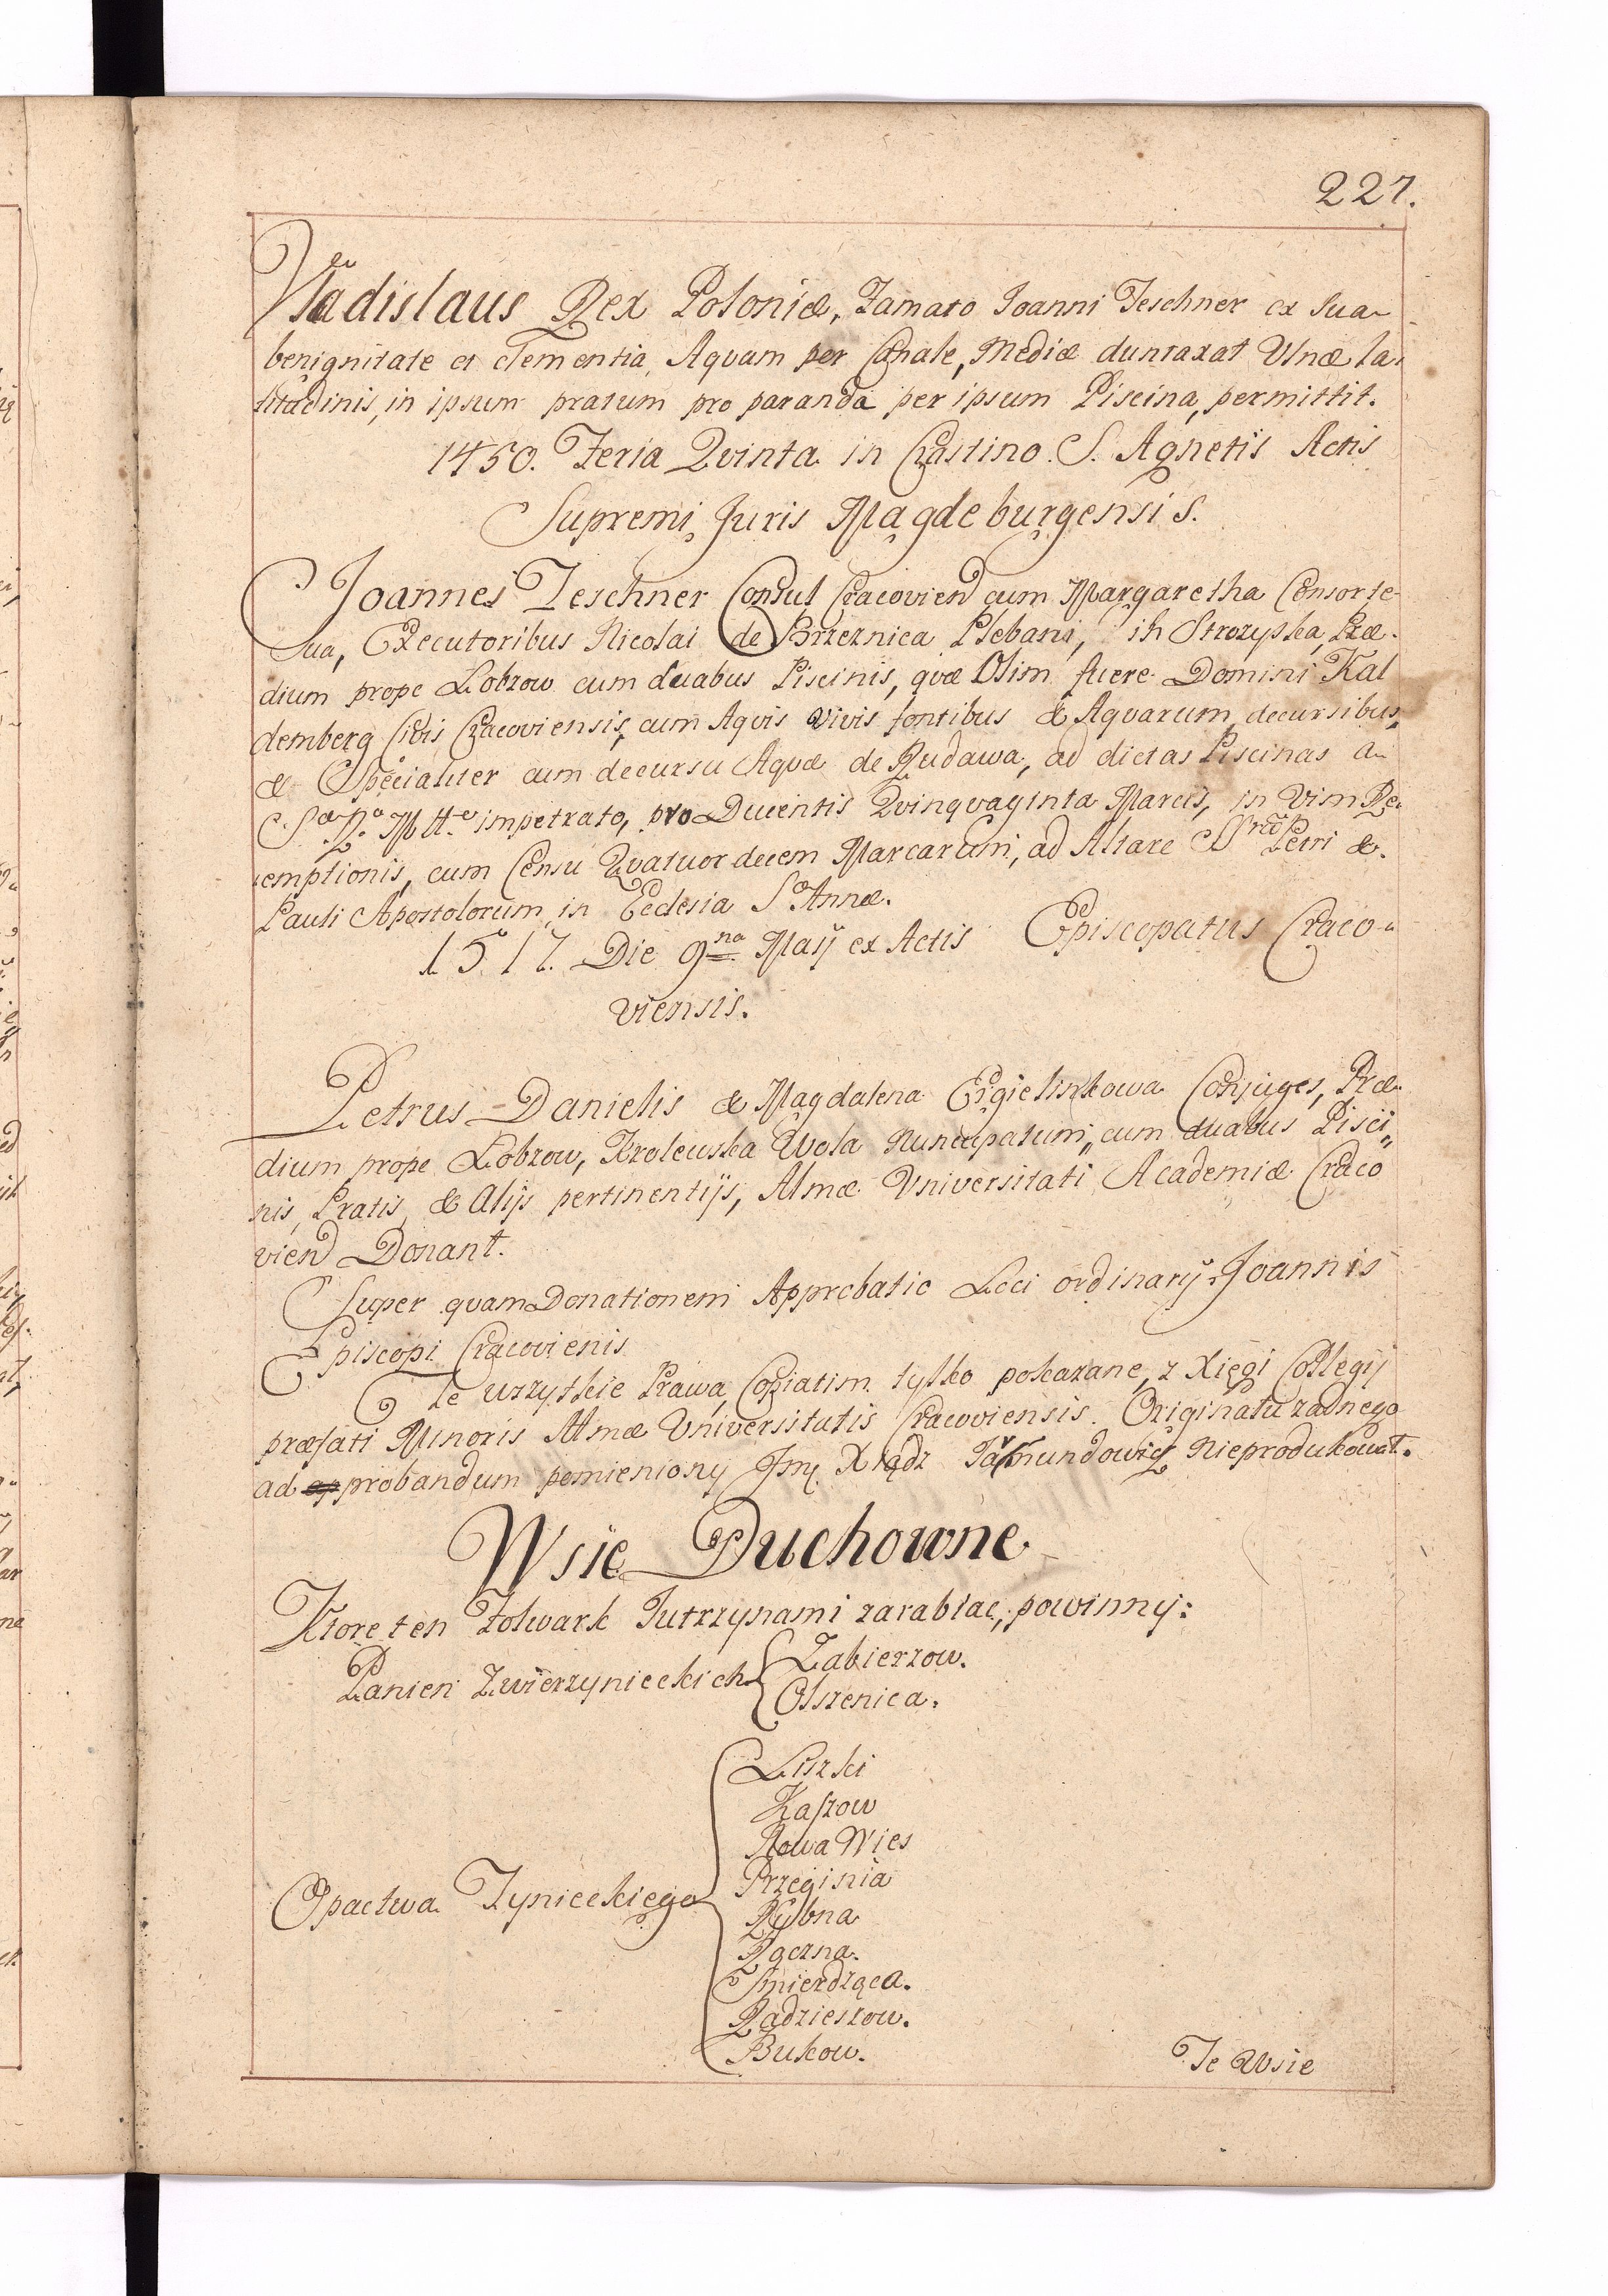 227.
Vladislaus Rex Poloniæ, Famato Joanni Teschner ex sua
benignitate et clementia, Aquam per Canale, Mediæ duntaxat Ulnæ la-
titudinis, in ipsum pratum pro paranda per ipsum Piscina, permittit.
1450. Feria Qvinta in Crastino S. Agnetis Actis
Supremi Juris Magdeburgensis.
Joannes Teschner Consul Cracovien cum Margaretha Consorte
sua, Executoribus Nicolai de Brzeznica Plebani, in Strozyska, Præ-
dium prope Lobzow cum duabus Piscinis, quæ Olim fuere Domini Kal
demberg Civis Cracoviensis, cum Aqvis vivis fontibus & Aqvarum decursibus,
& Specialiter cum decursu Aqvæ de Rudawa, ad dictas Piscinas a
impetrato, pro Ducentis Qvinqvaginta Marcis, in Vim Re-
emptionis, cum Censu Qvatuordecem Marcarum, ad Altare Petri &
Pauli Apostolorum in Ecclesia S. Annæ.
1517. Die 9na Maij ex Actis Episcopatus Craco-
viensis.
Petrus Danielis & Magdalena Conjuges, Præ-
dium prope Lobzow, Krolewska Wola Nuncupatum, cum duabus Pisci,,
nis, Pratis, & Alijs pertinentijs, Almæ Universitati Academiæ Craco
vien Donant.
Super quam Donationem Approbatio Loci ordinarij Joannis
Episcopi Cracovienis.
Te wszytkie Prawa, Copiatim tylko pokazane, z Xięgi Collegij
præfati Minoris Almæ Universitatis Cracoviensis. Originału zadnego
ad probandum pomieniony Jmę Xiądz Nieprodukował.
Wsie Duchowne
Ktore ten Folwark Jutrzynami zarabiac, powinny:
Panien Zwierzynieckich
Zabierzow.
Olszenica.
Opactwa Tynieckiego
Liszki
Kaszow
Nowa Wies
Przeginia
Rybna
Rączna.
Smierdząca.
Radzieszow.
Bukow.
Te Wsie